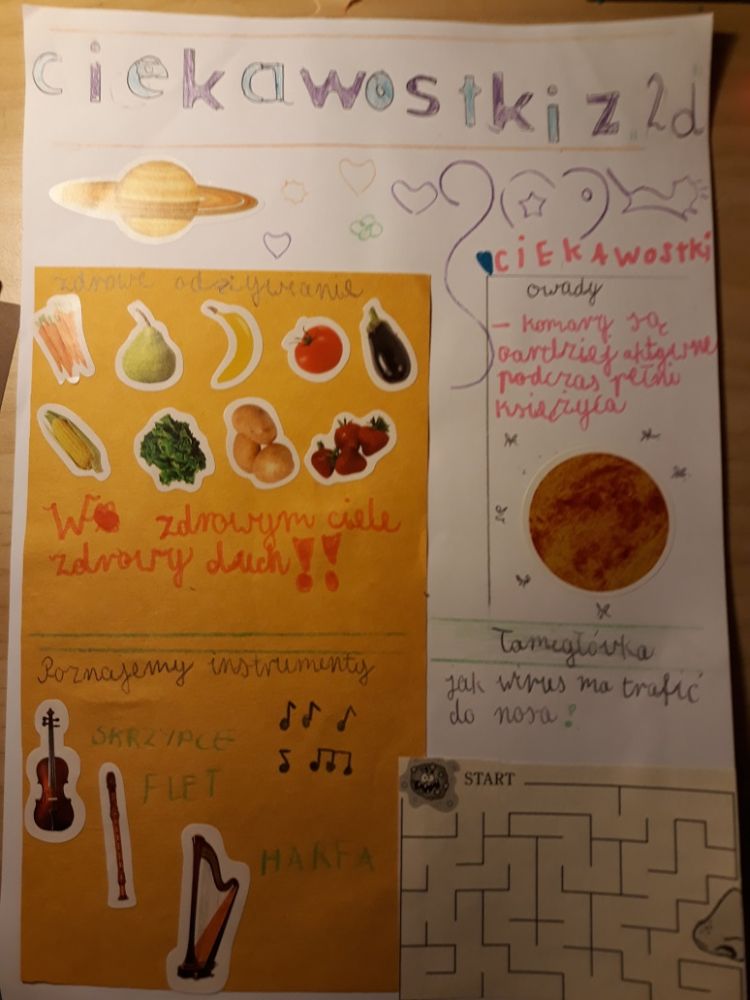 ciekawostki z 2d
zdrowe odżywianie
W zdrowym ciele
zdrowy duch!!
Poznajemy instrumenty
SKRZYPCE
FLET
HARFA
CIEKAWOSTKI
owady
- komary są
bardziej aktywne
podczas pełni
księżyca
Łamigłówka
jak wirus ma trafić
do nosa?
START